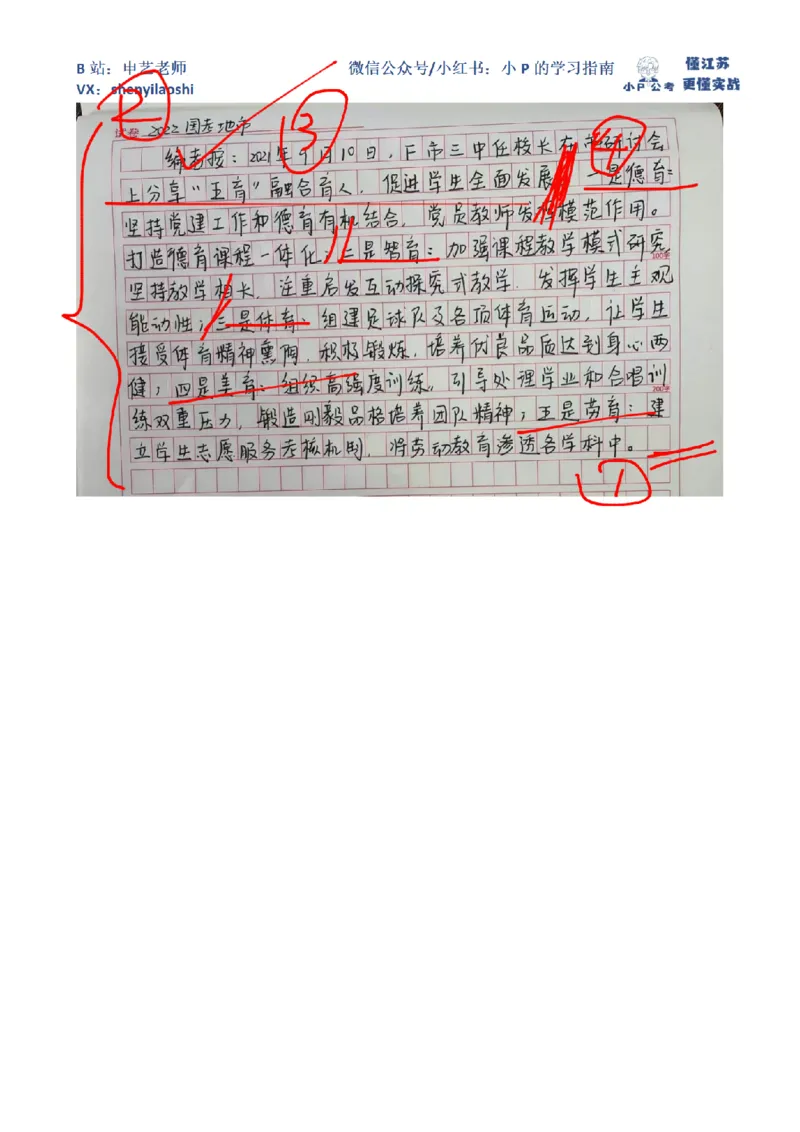 B 站：申艺老师 微信公众号/小红书：小 P 的学习指南
VX：shenyilaoshi
小P公考
懂江苏
更懂实战
试卷 2022国考地市
编者按：2021年9月10日，F市三中任校长在市研讨会
上分享“五育”融合育人，促进学生全面发展。一是德育：
坚持党建工作和德育有机结合，党员教师发挥模范作用。
打造德育课程一体化；二是智育：加强课程教学模式研究，
100字
坚持教学相长，注重启发互动探究式教学，发挥学生主观
能动性；三是体育：组建足球队及各项体育运动，让学生
接受体育精神熏陶，积极锻炼，培养优良品质达到身心两
健；四是美育：组织高强度训练，引导处理学业和合唱训
200字
练双重压力，锻造刚毅品格培养团队精神；五是劳育：建
立学生志愿服务考核机制，将劳动教育渗透各学科中。
②
③
④
①